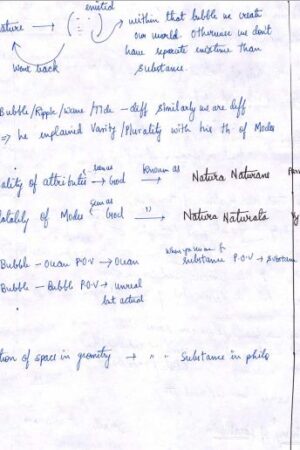 emitted
ature → within that bubble we create
our world otherwise we don't
have separate existence than
substance.
Went back
Bubble/Ripple/wave/Tide - diff similarly we are diff
⇒ he explained Varity/Plurality with his th of Modes
ality of attributes → seen as God → known as Natura Naturans
otality of Modes → seen as God → " Natura Naturata
Bubble - Ocean P.O.V → Ocean
substance P.O.V → Substan
Bubble - Bubble P.O.V → unreal
but actual
tion of space in geometry → " " Substance in philo